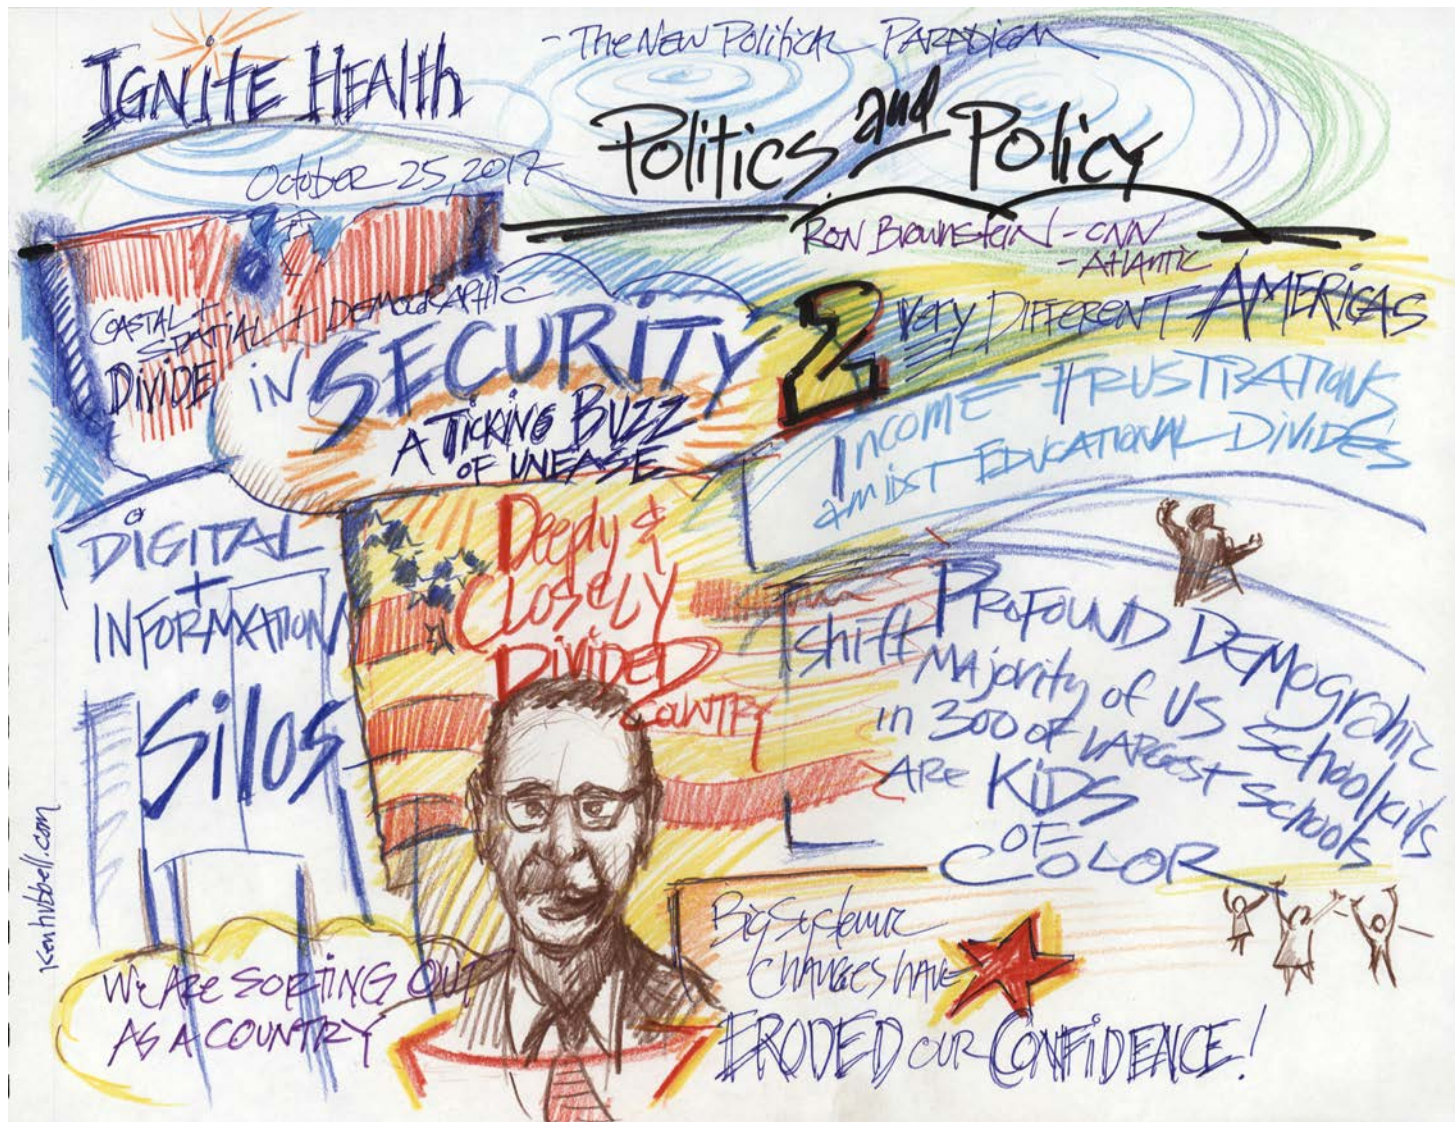 IGNITE HEALTH
October 25, 2017
- The New Political PARADIGM
Politics and Policy
Ron Brownstein - CNN
- Atlantic
COASTAL +
SPATIAL + DEMOGRAPHIC
DIVIDE
inSECURITY
A TICKING BUZZ
OF UNEASE
2 Very DIFFERENT AMERICAS
INCOME FRUSTRATIONS
amidst EDUCATIONAL DIVIDES
DIGITAL
+
INFORMATION
Silos
Deeply &
CLOSELY
DIVIDED
COUNTRY
PROFOUND DEMOGRAPHIC
shift
MAjority of US Schoolkids
in 300 of LARGEST Schools
ARE KiDS
OF
COLOR
WE ARE SORTING OUT
AS A COUNTRY
Big Systemic
CHANGES HAVE
ERODED our CONFIDENCE!
Kenhubbell.com